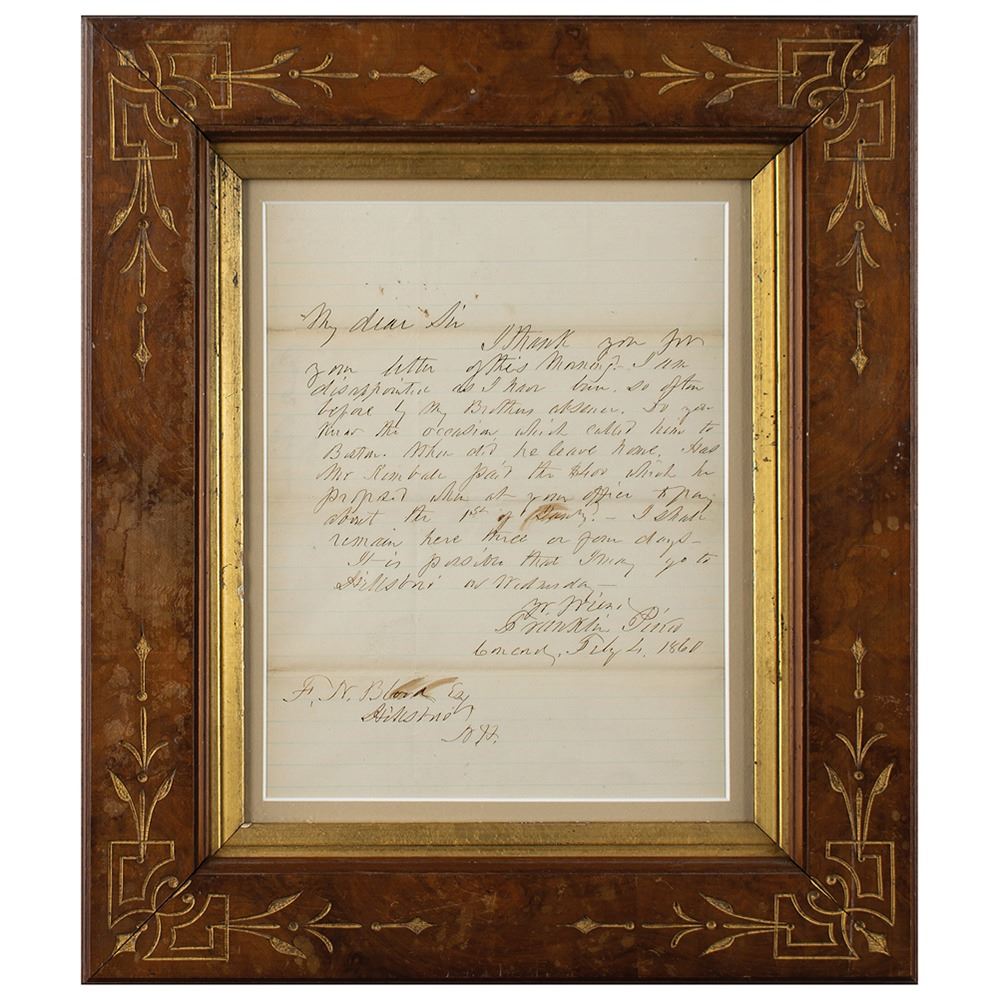 My dear Sir
I thank you for
your letter of this Morning? I am
disappointed as I have been so often
before by My Brothers absence. Do you
know the occasion which called him to
Boston. When did he leave home. Has
Mr Kimball paid the $400 which he
proposed when at your office to pay
about the 1st of Jany? - I shall
remain here three or four days -
It is possible that I may go to
Hillsboro' on Wednesday -
Yr Friend
Franklin Pierce
Concord, Feby 4. 1860
F. N. Blood Esq
Hillsboro'
N.H.